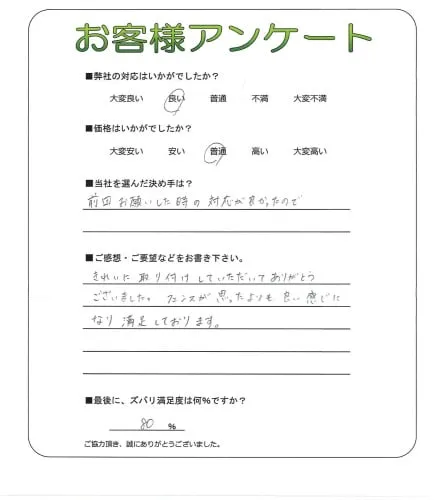 お客様アンケート
■弊社の対応はいかがでしたか？
大変良い 良い 普通 不満 大変不満
■価格はいかがでしたか？
大変安い 安い 普通 高い 大変高い
■当社を選んだ決め手は？
前回お願いした時の対応が良かったので
■ご感想・ご要望などをお書き下さい。
きれいに取り付けしていただいてありがとう
ございました。フェンスが思ったよりも良い感じに
なり満足しております。
■最後に、ズバリ満足度は何％ですか？
80 %
ご協力頂き、誠にありがとうございました。